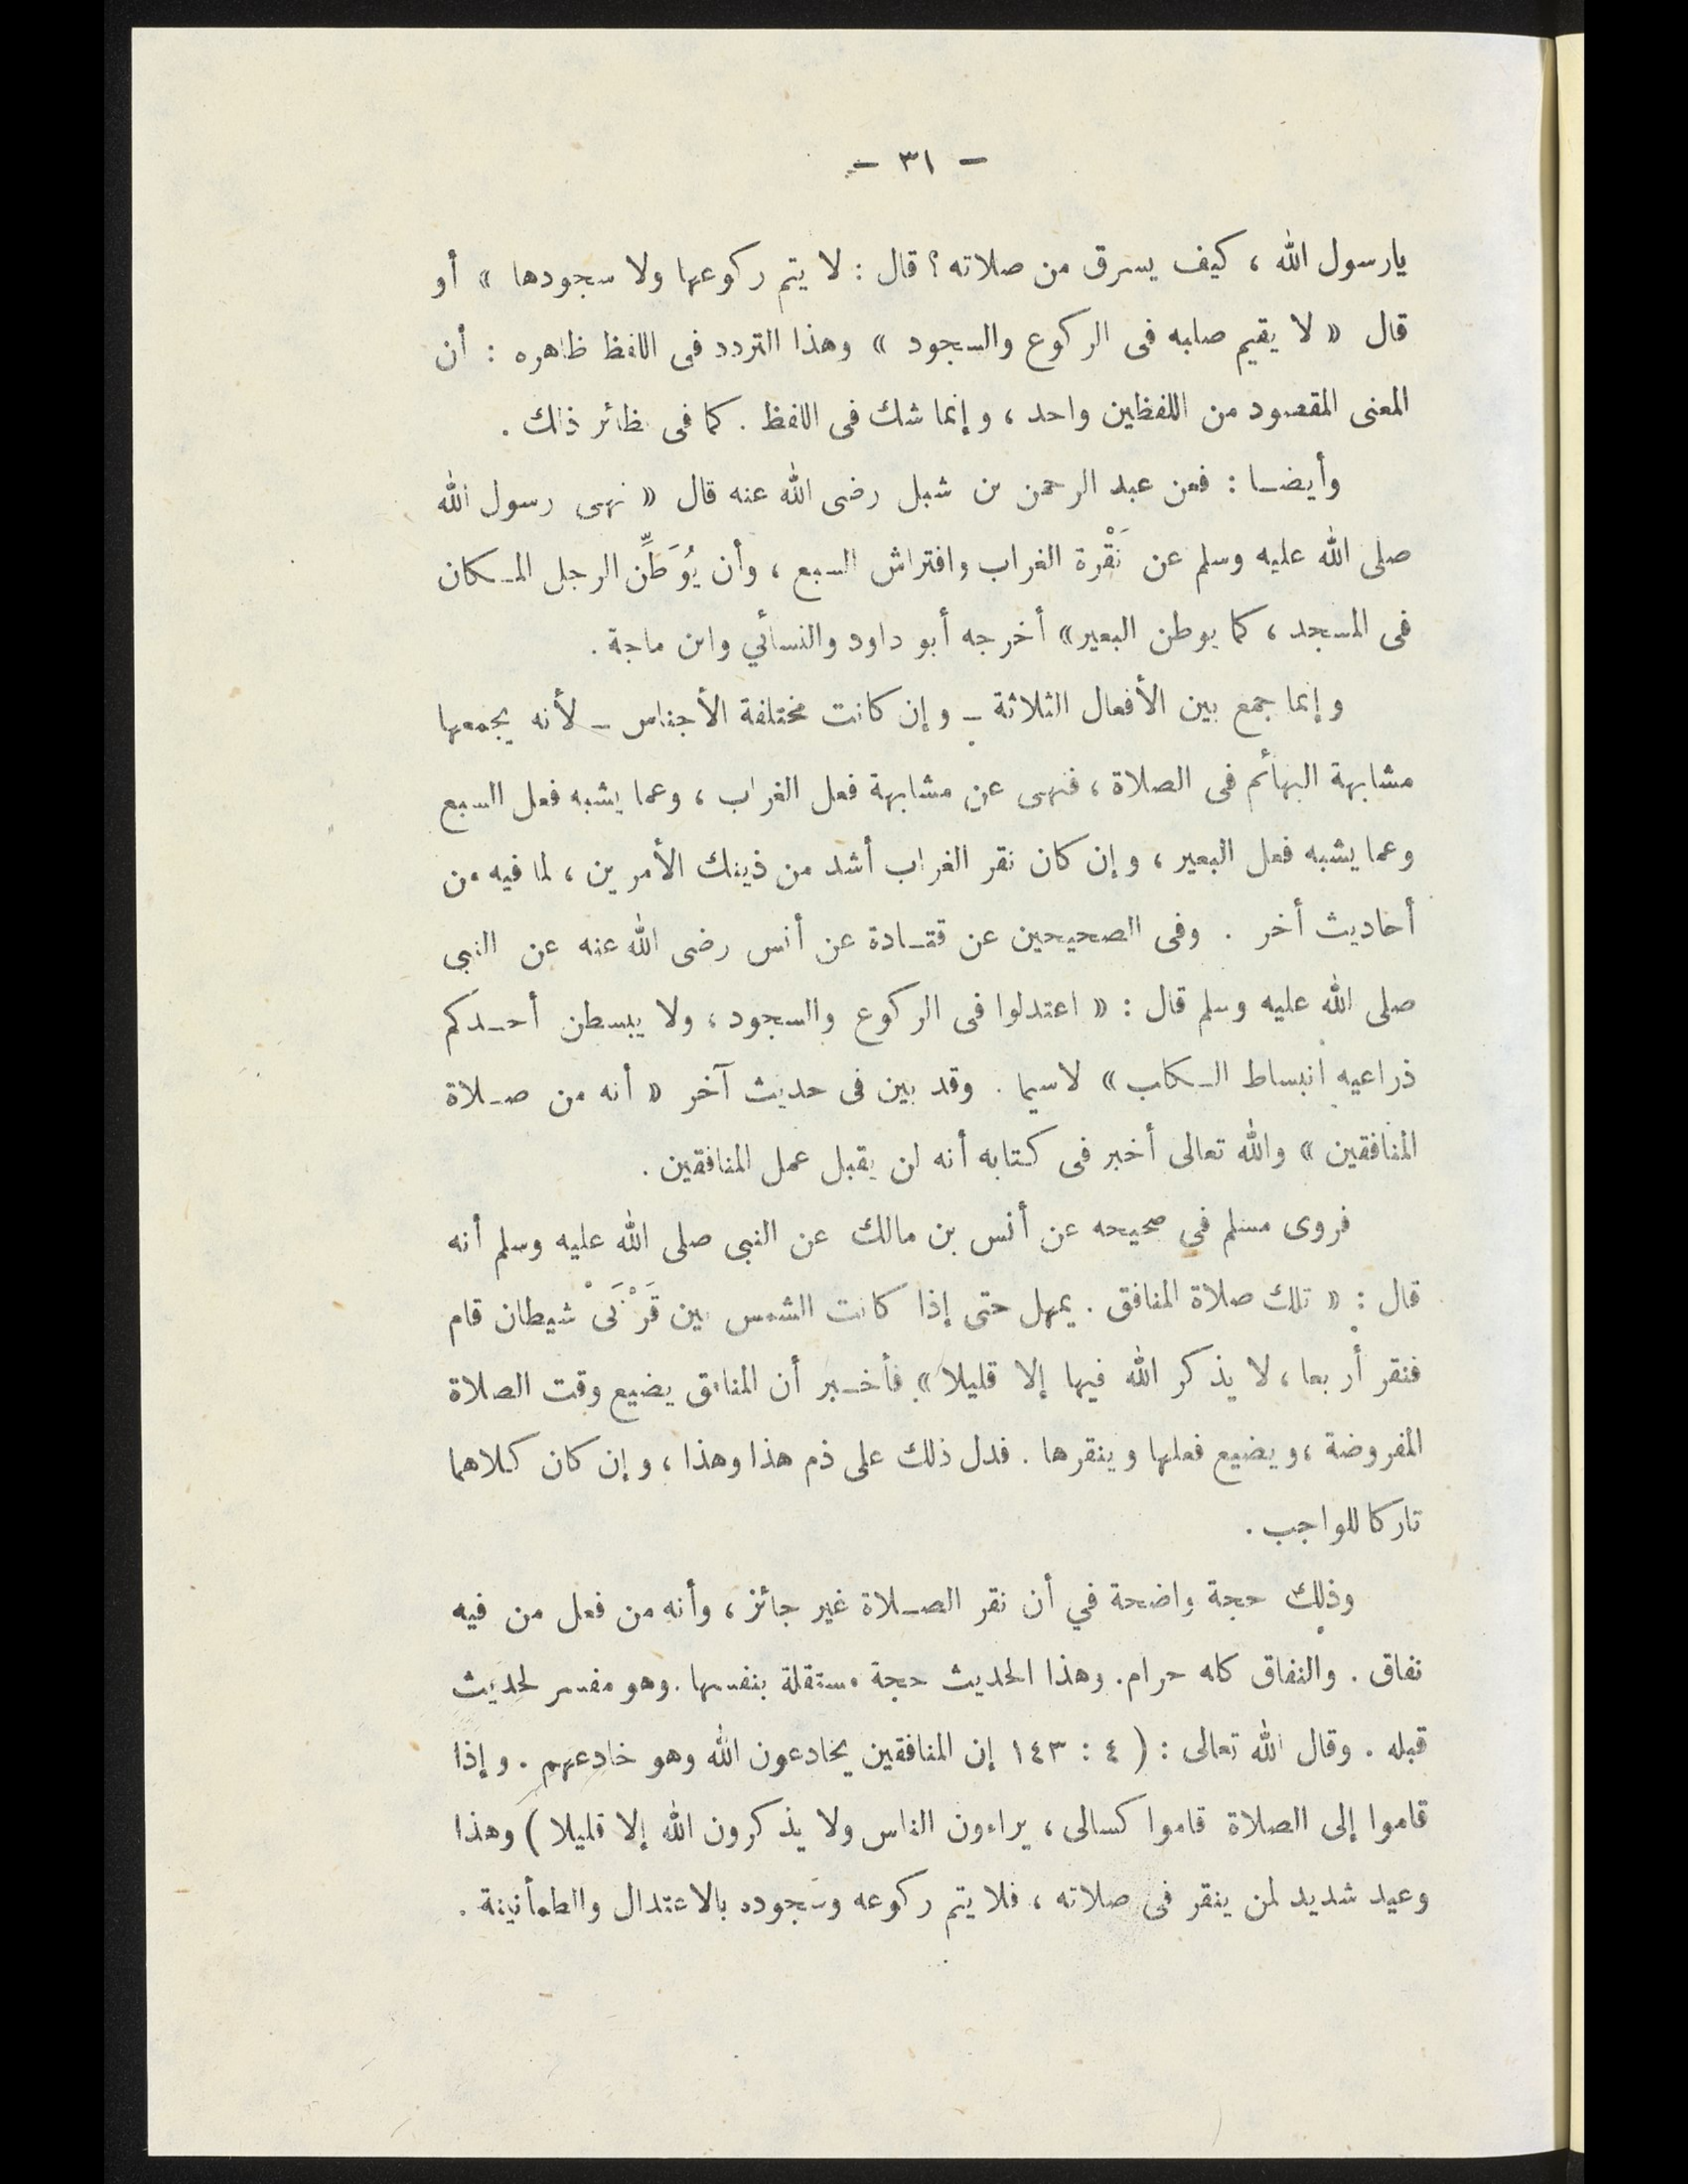 — ٣١ —
يارسول الله ، كيف يسرق من صلاته ؟ قال : لا يتم ركوعها ولا سجودها » أو
قال « لا يقيم صلبه فى الركوع والسجود » وهذا التردد فى اللفظ ظاهره : أن
المعنى المقصود من اللفظين واحد ، وإنما شك فى اللفظ . كما فى نظائر ذلك .
وأيضا : فعن عبد الرحمن بن شبل رضى الله عنه قال « نهى رسول الله
صلى الله عليه وسلم عن نَقْرة الغراب وافتراش السبع ، وأن يُوَطِّن الرجل المكان
فى المسجد ، كما يوطن البعير » أخرجه أبو داود والنسائي وابن ماجة .
وإنما جمع بين الأفعال الثلاثة – وإن كانت مختلفة الأجناس – لأنه يجمعها
مشابهة البهائم فى الصلاة ، فنهى عن مشابهة فعل الغراب ، وعما يشبه فعل السبع
وعما يشبه فعل البعير ، وإن كان نقر الغراب أشد من ذينك الأمرين ، لما فيه من
أحاديث أخر . وفى الصحيحين عن قتادة عن أنس رضى الله عنه عن النبى
صلى الله عليه وسلم قال : « اعتدلوا فى الركوع والسجود ، ولا يبسطن أحدكم
ذراعيه انبساط الكلب » لاسيما . وقد بين فى حديث آخر « أنه من صلاة
المنافقين » والله تعالى أخبر فى كتابه أنه لن يقبل عمل المنافقين .
فروى مسلم فى صحيحه عن أنس بن مالك عن النبى صلى الله عليه وسلم أنه
قال : « تلك صلاة المنافق . يمهل حتى إذا كانت الشمس بين قَرْنَىْ شيطان قام
فنقر أربعا ، لا يذكر الله فيها إلا قليلا » فأخبر أن المنافق يضيع وقت الصلاة
المفروضة ، ويضيع فعلها وينقرها . فدل ذلك على ذم هذا وهذا ، وإن كان كلاهما
تاركا للواجب .
وذلك حجة واضحة في أن نقر الصلاة غير جائز ، وأنه من فعل من فيه
نفاق . والنفاق كله حرام . وهذا الحديث حجة مستقلة بنفسها . وهو مفسر لحديث
قبله . وقال الله تعالى : ( ٤ : ١٤٣ إن المنافقين يخادعون الله وهو خادعهم . وإذا
قاموا إلى الصلاة قاموا كسالى ، يراءون الناس ولا يذكرون الله إلا قليلا ) وهذا
وعيد شديد لمن ينقر فى صلاته ، فلا يتم ركوعه وسجوده بالاعتدال والطمأنينة .